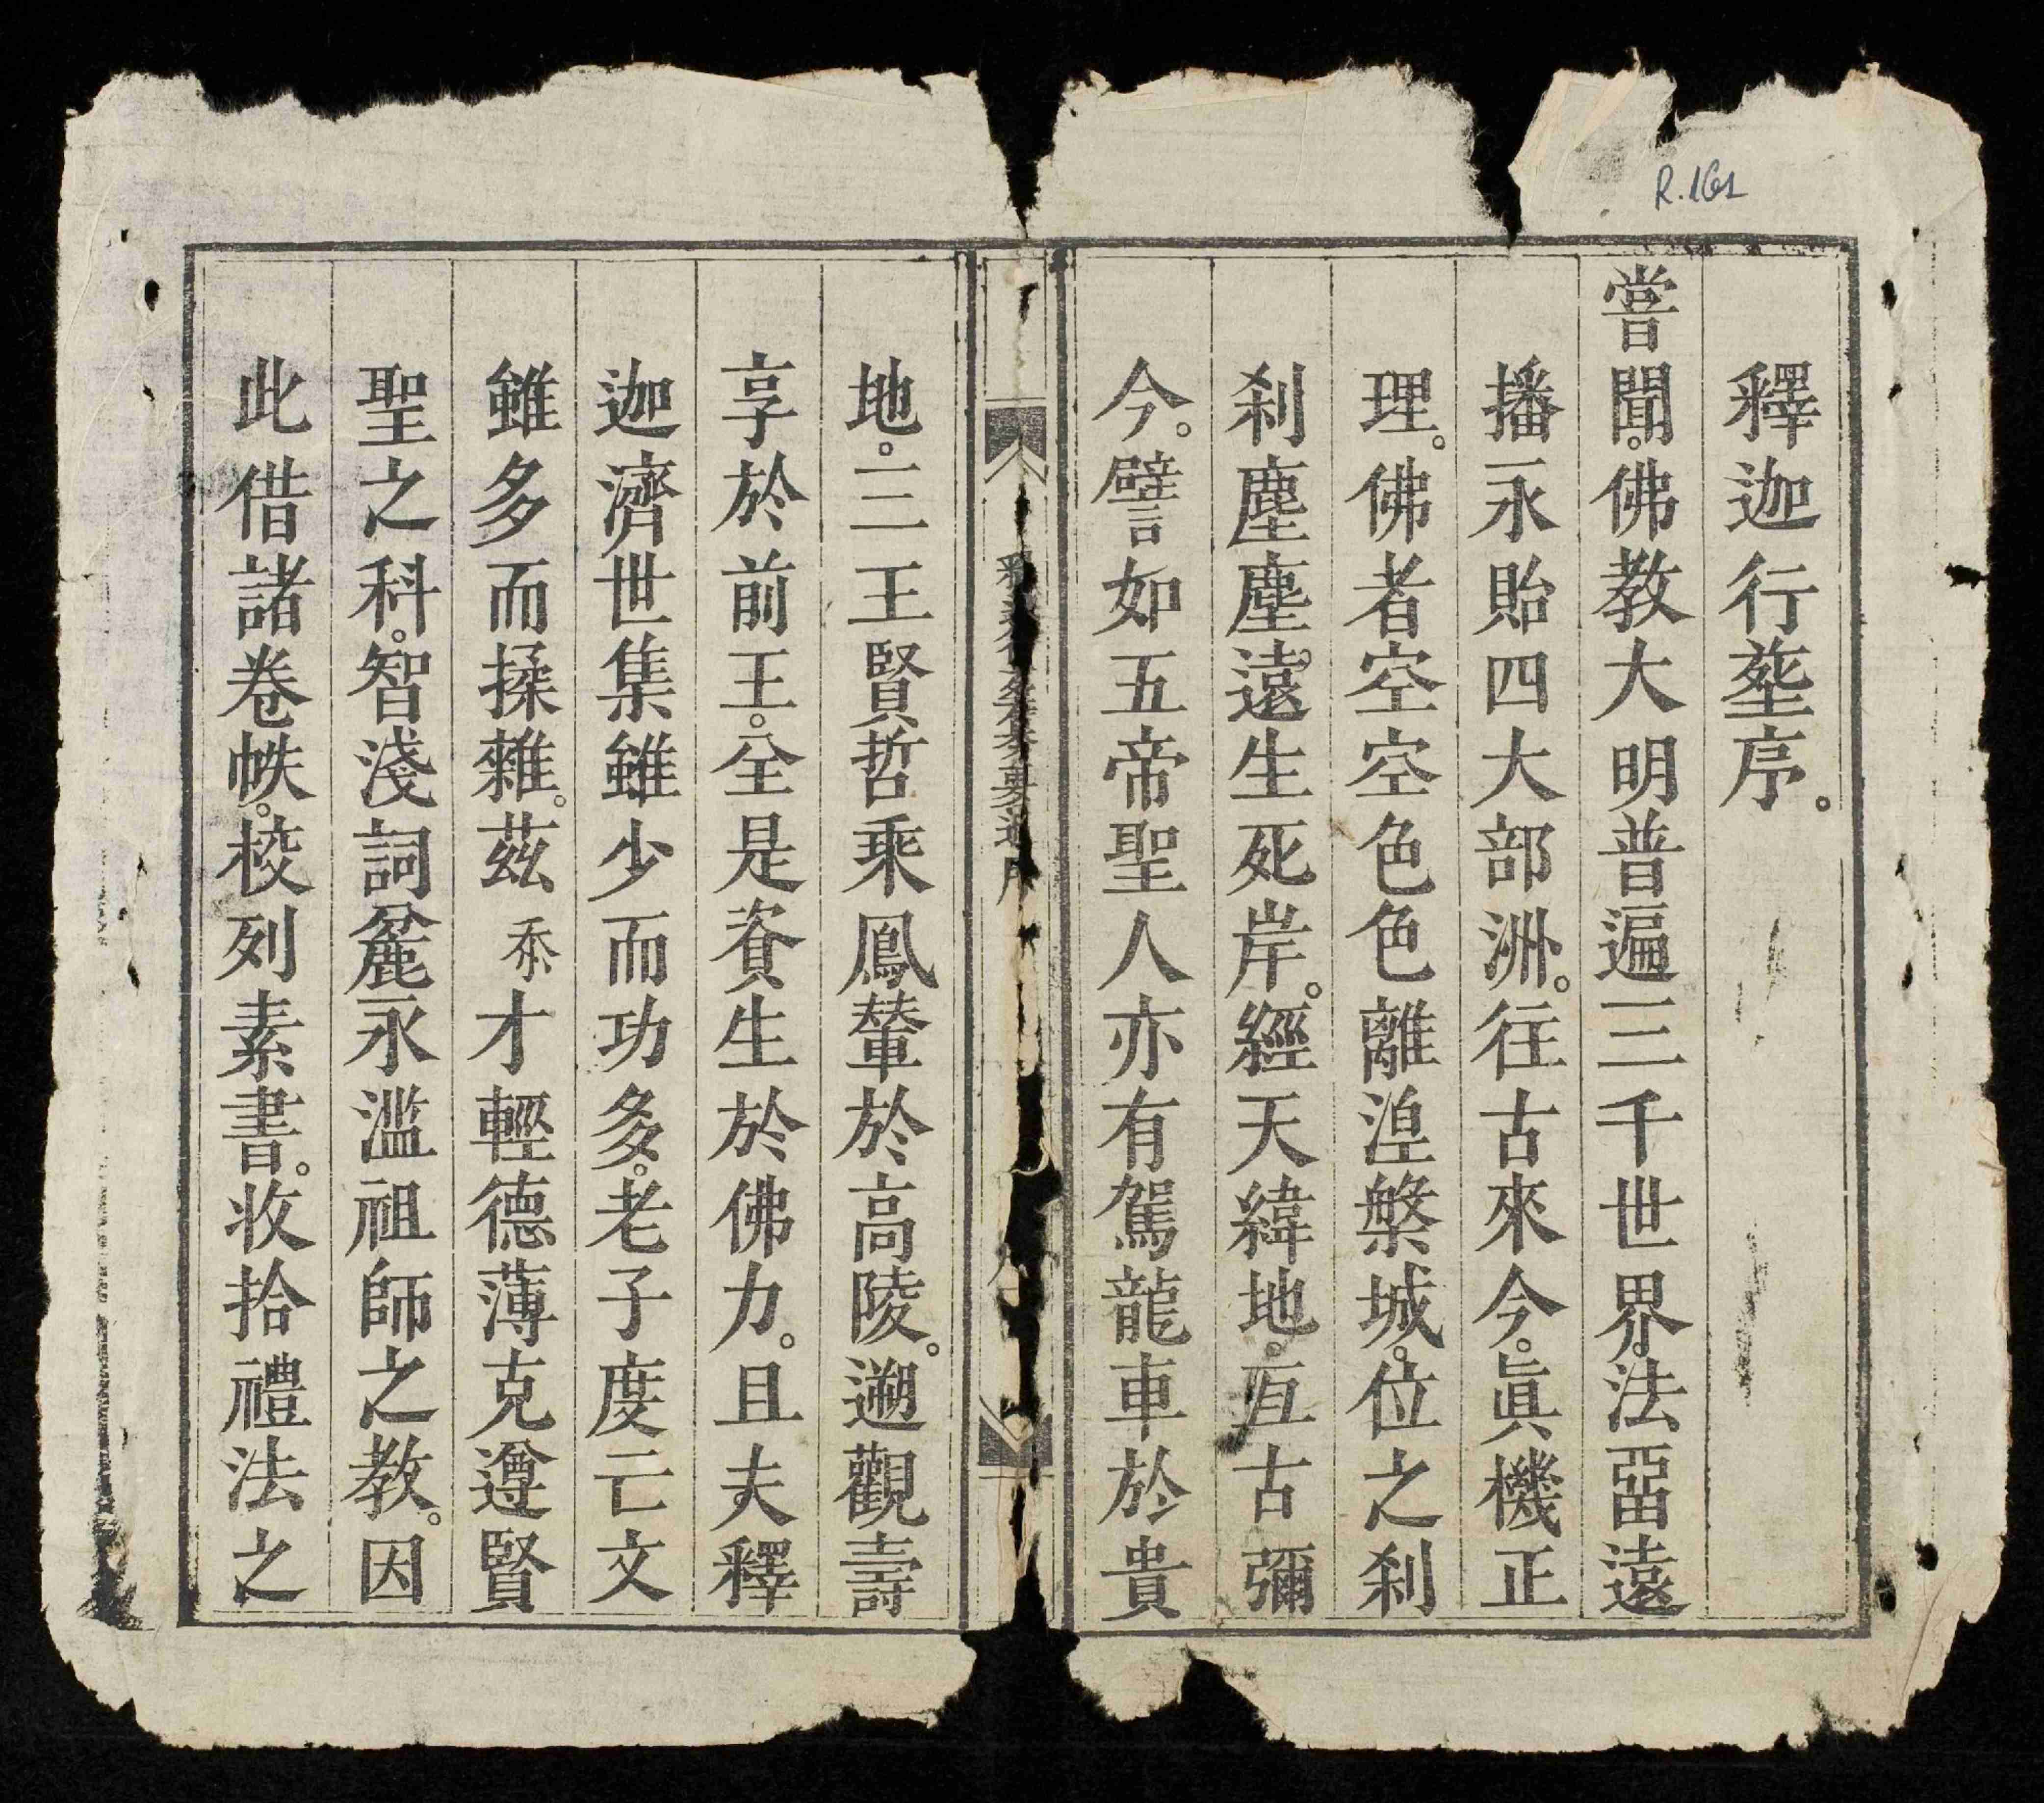 R.161
釋迦行塟序。
嘗聞。佛教大明普遍三千世界。法畱遠
播永貽四大部洲。往古來今。眞機正
理。佛者空空色色離湼槃城。位之刹
刹塵塵。遠生死岸。經天緯地。亘古彌
今。譬如五帝聖人亦有駕龍車於貴
地。三王賢哲乘鳳輦於高陵。遡觀壽
享於前王。全是資生於佛力。且夫釋
迦濟世集雖少而功多。老子度亡文
雖多而揉雜。茲忝才輕德薄克遵賢
聖之科。智淺詞麄永滥祖師之教。因
此借諸卷帙。校列素書。收拾禮法之